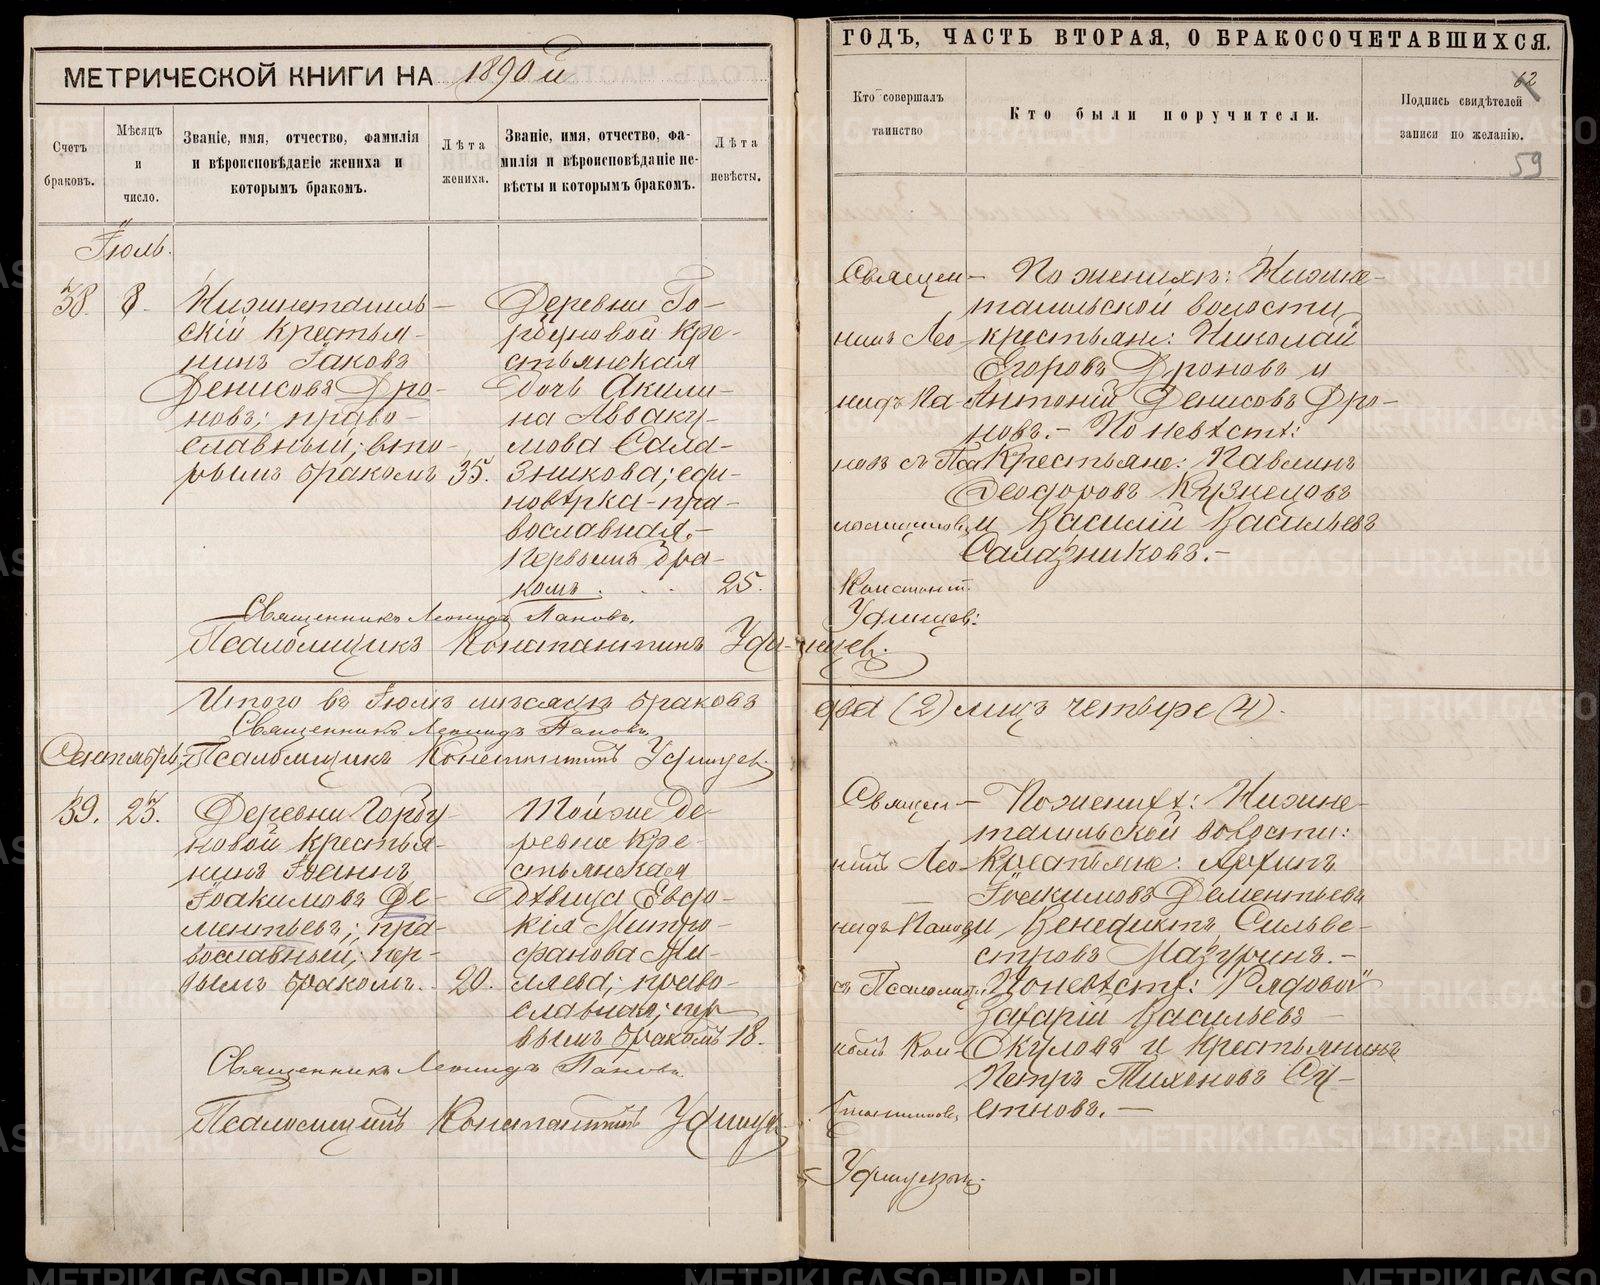 МЕТРИЧЕСКОЙ КНИГИ НА 1890 й
ГОДЪ, ЧАСТЬ ВТОРАЯ, О БРАКОСОЧЕТАВШИХСЯ.
62
59
Счетъ браковъ.
Мѣсяцъ и число.
Званіе, имя, отчество, фамилія
и вѣроисповѣданіе жениха и
которымъ бракомъ.
Лѣта жениха.
Званіе, имя, отчество, фа-
милія и вѣроисповѣданіе не-
вѣсты и которымъ бракомъ.
Лѣта невѣсты.
Кто совершалъ
таинство
Кто были поручители.
Подпись свидѣтелей
записи по желанію.
Іюль.
38. 8.
Нижнетагиль-
скій крестья-
нинъ Іаковъ
Денисовъ Дро-
новъ; право-
славный; вто-
рымъ бракомъ 35.
Деревни Го-
рбуновой кре-
стьянская
дочь Акили-
на Авваку-
мова Сала-
зникова; еди-
новѣрка-пра-
вославная.-
Первымъ бра-
комъ . . . 25.
Священ-
никъ Лео-
нидъ Па-
новъ съ Пса
ломщиком
Констант.
Уфимцев:
По женихѣ: Нижне-
тагильской волости
крестьяне: Николай
Егоровъ Дроновъ и
Антоній Денисовъ Дро-
новъ.- По невѣстѣ:
Крестьяне: Павлинъ
Ѳеодоровъ Кузнецовъ
и Василій Васильевъ
Салазниковъ.-
Священникъ Леонидъ Пановъ.
Псаломщикъ Константинъ Уфимцев.
Итого въ Іюлѣ мѣсяцѣ браковъ два (2) лицъ четыре (4).
Священникъ Леонидъ Пановъ
Сентябрь. Псаломщикъ Константинъ Уфимцев.
39. 23.
Деревни Горбу-
новой крестья-
нинъ Іоаннъ
Іоакимовъ Де-
ментьевъ; пра-
вославный; пер-
вымъ бракомъ. 20.
Той же де-
ревни кре-
стьянская
дѣвица Евдо-
кія Митро-
фанова Ми-
ляева; право-
славная; пер-
вымъ бракомъ 18.
Священ-
никъ Лео-
нидъ Пановъ
съ Псаломщи-
комъ Кон-
стантином
Уфимцевым.
По женихѣ: Нижне-
тагильской волости:
Крестьяне: Логинъ
Іоакимовъ Дементьевъ
и Венедиктъ Сильве-
стровъ Мазуринъ.-
По невѣстѣ: Рядовой
Захарій Васильевъ
Окуловъ и крестьянинъ
Петръ Тихоновъ Су-
стновъ.-
Священникъ Леонидъ Пановъ
Псаломщикъ Константинъ Уфимцев
METRIKI.GASO-URAL.RU